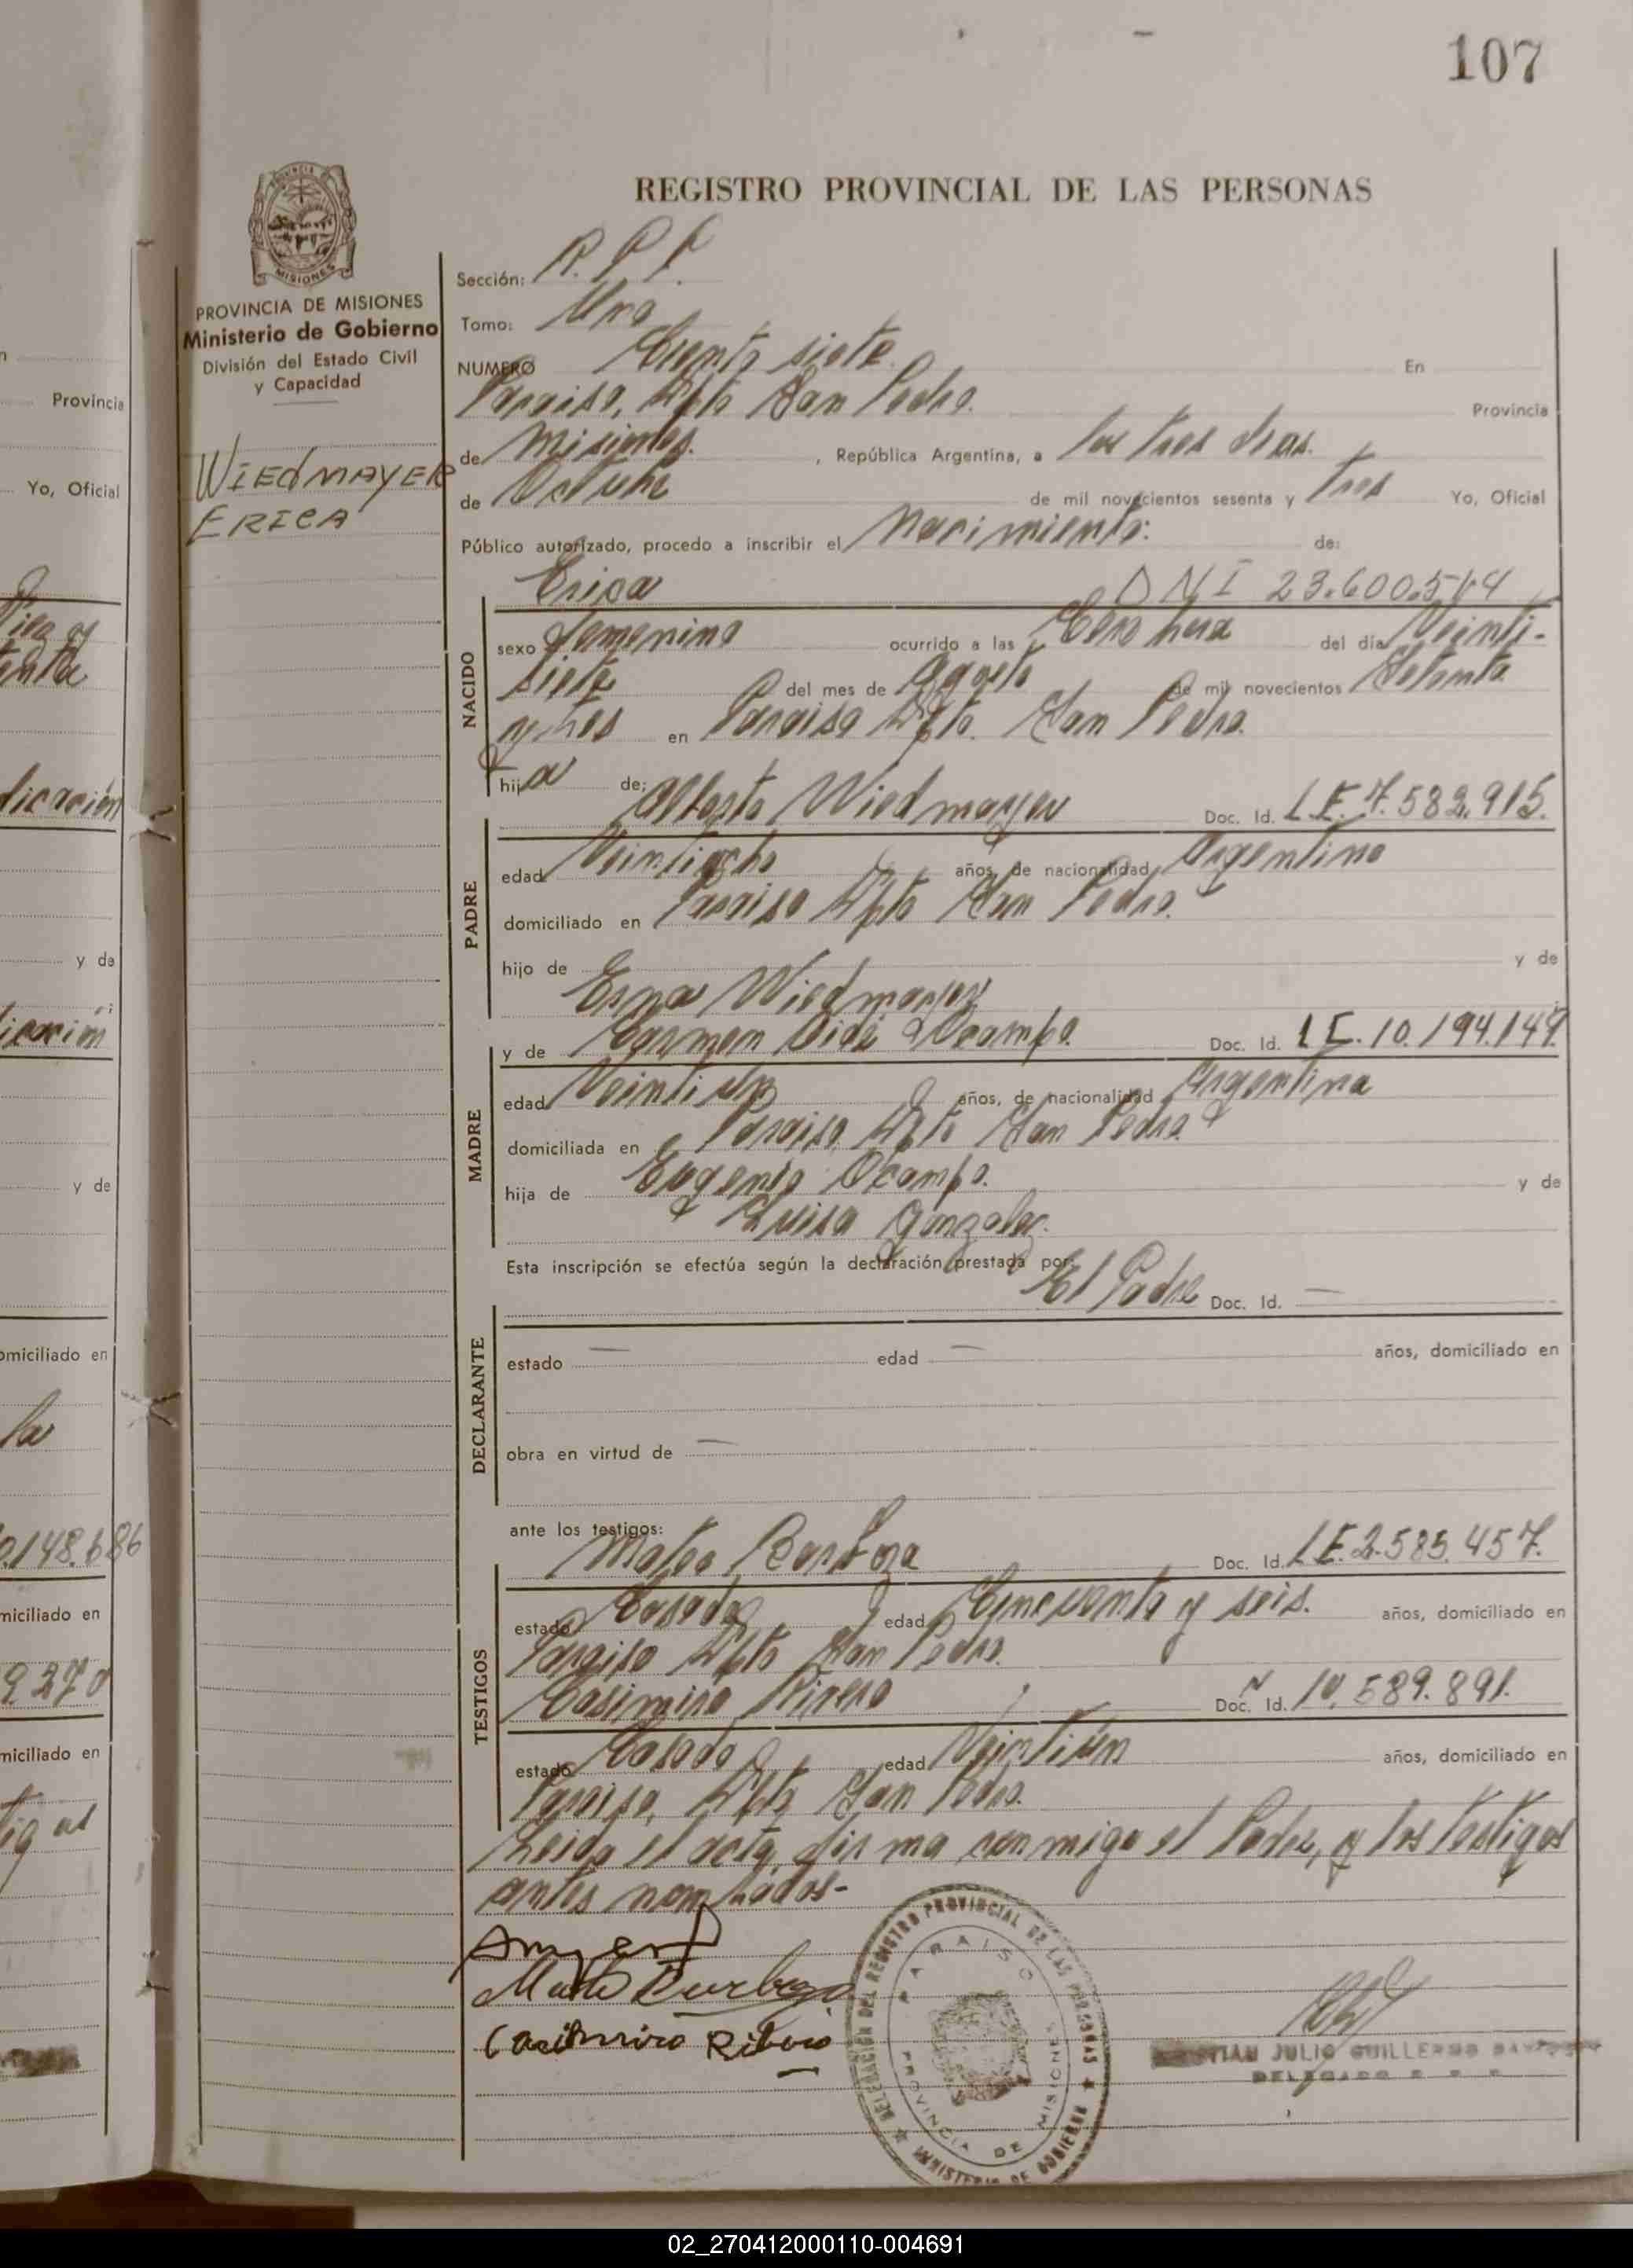 107
REGISTRO PROVINCIAL DE LAS PERSONAS
MISIONES
PROVINCIA DE MISIONES
Ministerio de Gobierno
División del Estado Civil
y Capacidad
WIEDMAYER
ERICA
Sección: R. P. P.
Tomo: Uno
NUMERO Ciento siete. En
Paraiso, Dpto San Pedro. Provincia
de Misiones. , República Argentina, a los tres dias.
de Octubre de mil novecientos sesenta y tres Yo, Oficial
Público autorizado, procedo a inscribir el Nacimiento: de:
Erica DNI 23.600.514
NACIDO
sexo Femenino ocurrido a las Cero hora del día Veinti-
siete del mes de Agosto de mil novecientos Setenta
y tres en Paraiso Dpto. San Pedro.
hija de; Alberto Wiedmayer Doc. Id. L.E. 7.582.915.
PADRE
edad Veintiocho años, de nacionalidad Argentino
domiciliado en Paraiso Dpto San Pedro.
hijo de y de
Erna Wiedmayer
y de Carmen Ocampo. Doc. Id. 10.194.149
MADRE
edad años, de nacionalidad Argentina
domiciliada en Paraiso, Dpto San Pedro.
hija de Eugenio Ocampo. y de
Luisa Gonzalez.
Esta inscripción se efectúa según la declaración prestada por:
El Padre Doc. Id. —
DECLARANTE
estado — edad — años, domiciliado en
obra en virtud de —
ante los testigos:
Mateo Barboza Doc. Id. L.E. 2.585.457.
TESTIGOS
estado Casado edad Cincuenta y seis. años, domiciliado en
Paraiso Dpto San Pedro.
Casimiro Rivero Doc. Id. 10.589.891.
estado Casado edad Veintiún años, domiciliado en
Paraiso, Dpto San Pedro.
Leida el acta, firma conmigo el Padre, y los testigos
antes nombrados-
Casimiro Ribero
DELEGACION DEL REGISTRO PROVINCIAL DE LAS PERSONAS
PARAISO
PROVINCIA DE MISIONES
MINISTERIO DE GOBIERNO
JULIO GUILLERMO
DELEGADO R. P. P.
Provincia
Yo, Oficial
y de
y de
omiciliado en
la
0.148.686
miciliado en
miciliado en
02_270412000110-004691